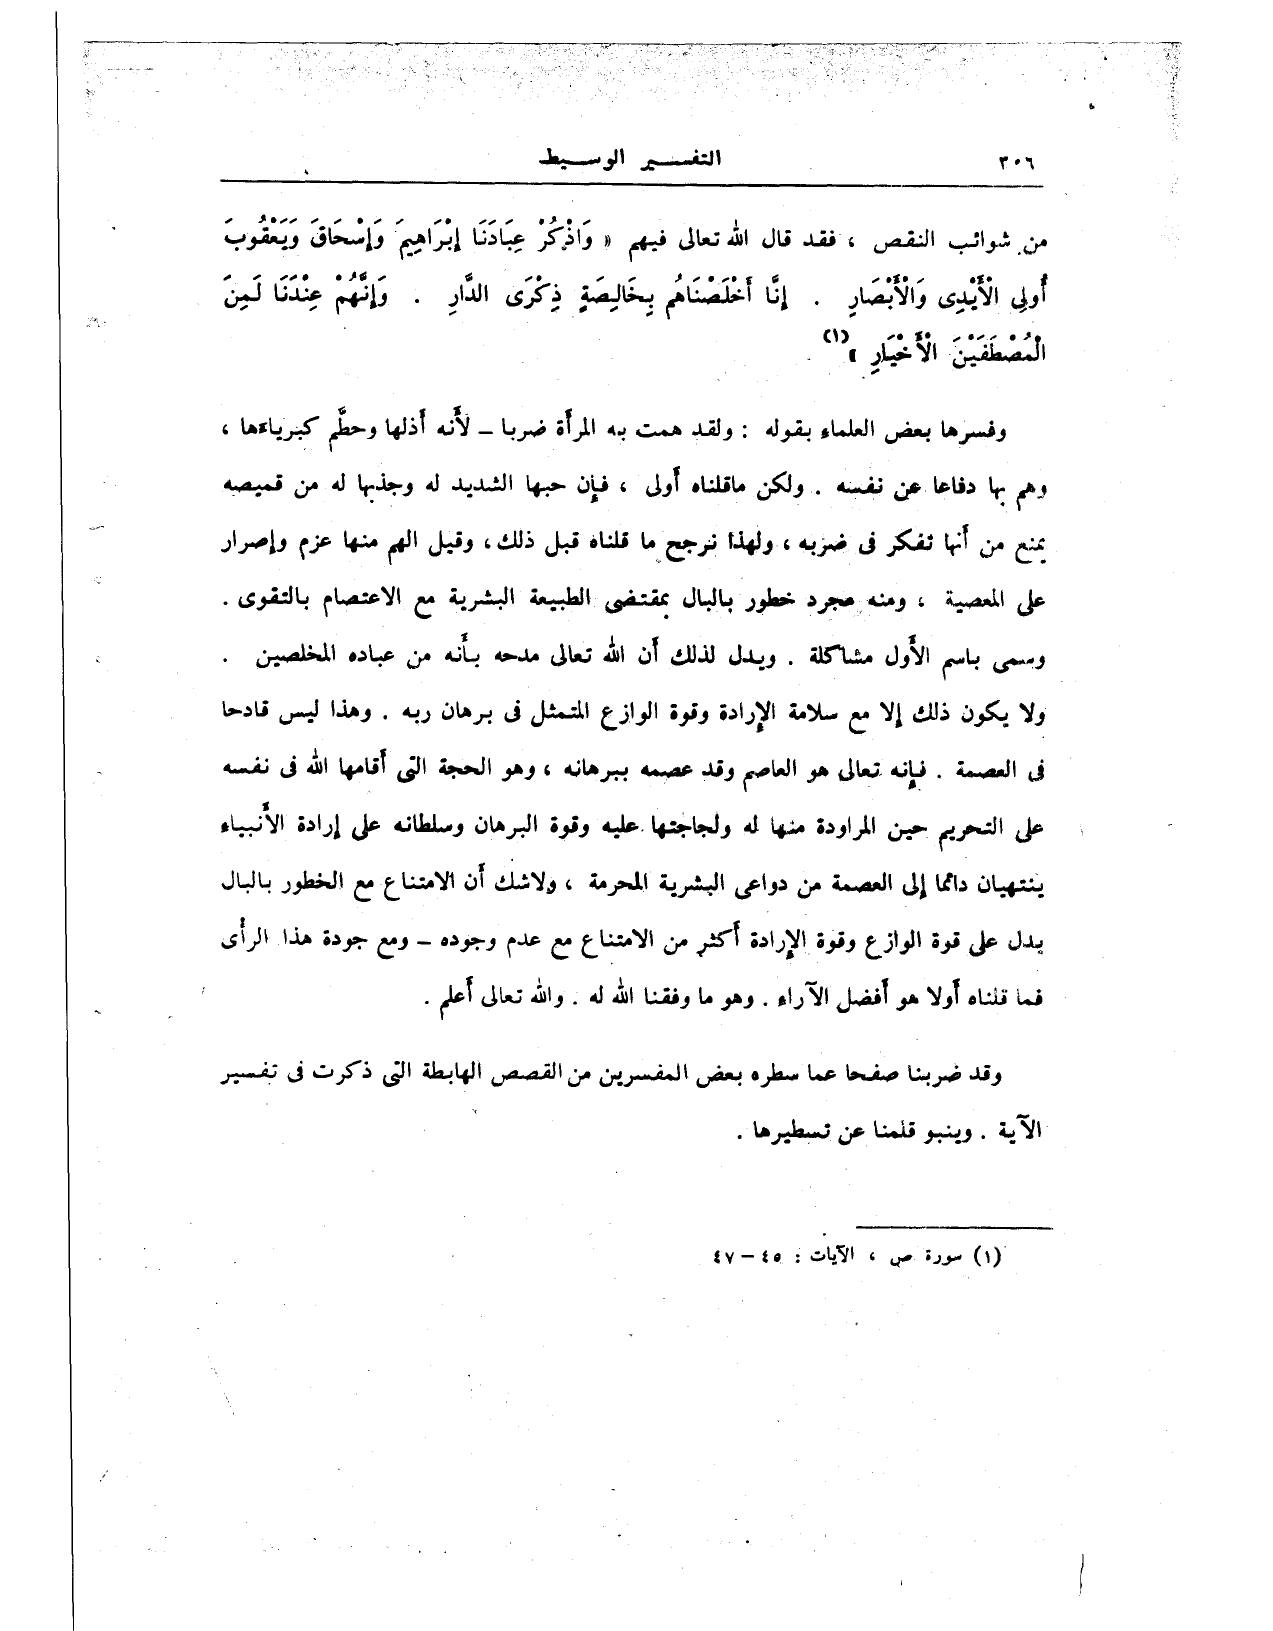 ٣٠٦ التفسير الوسيط
من شوائب النقص ، فقد قال الله تعالى فيهم « وَاذْكُرْ عِبَادَنَا إِبْرَاهِيمَ وَإِسْحَاقَ وَيَعْقُوبَ
أُولِى الْأَيْدِى وَالْأَبْصَارِ . إِنَّا أَخْلَصْنَاهُم بِخَالِصَةٍ ذِكْرَى الدَّارِ . وَإِنَّهُمْ عِنْدَنَا لَمِنَ
الْمُصْطَفَيْنَ الْأَخْيَارِ »(١) .
وفسرها بعض العلماء بقوله : ولقد همت به المرأة ضربا – لأنه أذلها وحطَّم كبرياءها ،
وهم بها دفاعا عن نفسه . ولكن ماقلناه أولى ، فإن حبها الشديد له وجذبها له من قميصه
يمنع من أنها تفكر فى ضربه ، ولهذا نرجح ما قلناه قبل ذلك ، وقيل الهم منها عزم وإصرار
على المعصية ، ومنه مجرد خطور بالبال بمقتضى الطبيعة البشرية مع الاعتصام بالتقوى .
وسمى باسم الأول مشاكلة . ويدل لذلك أن الله تعالى مدحه بأنه من عباده المخلصين .
ولا يكون ذلك إلا مع سلامة الإرادة وقوة الوازع المتمثل فى برهان ربه . وهذا ليس قادحا
فى العصمة . فإنه تعالى هو العاصم وقد عصمه ببرهانه ، وهو الحجة التى أقامها الله فى نفسه
على التحريم حين المراودة منها له ولجاجتها عليه وقوة البرهان وسلطانه على إرادة الأنبياء
ينتهيان دائما إلى العصمة من دواعى البشرية المحرمة ، ولاشك أن الامتناع مع الخطور بالبال
يدل على قوة الوازع وقوة الإرادة أكثر من الامتناع مع عدم وجوده – ومع جودة هذا الرأى
فما قلناه أولا هو أفضل الآراء . وهو ما وفقنا الله له . والله تعالى أعلم .
وقد ضربنا صفحا عما سطره بعض المفسرين من القصص الهابطة التى ذكرت فى تفسير
الآية . وينبو قلمنا عن تسطيرها .
(١) سورة ص ، الآيات : ٤٥ – ٤٧